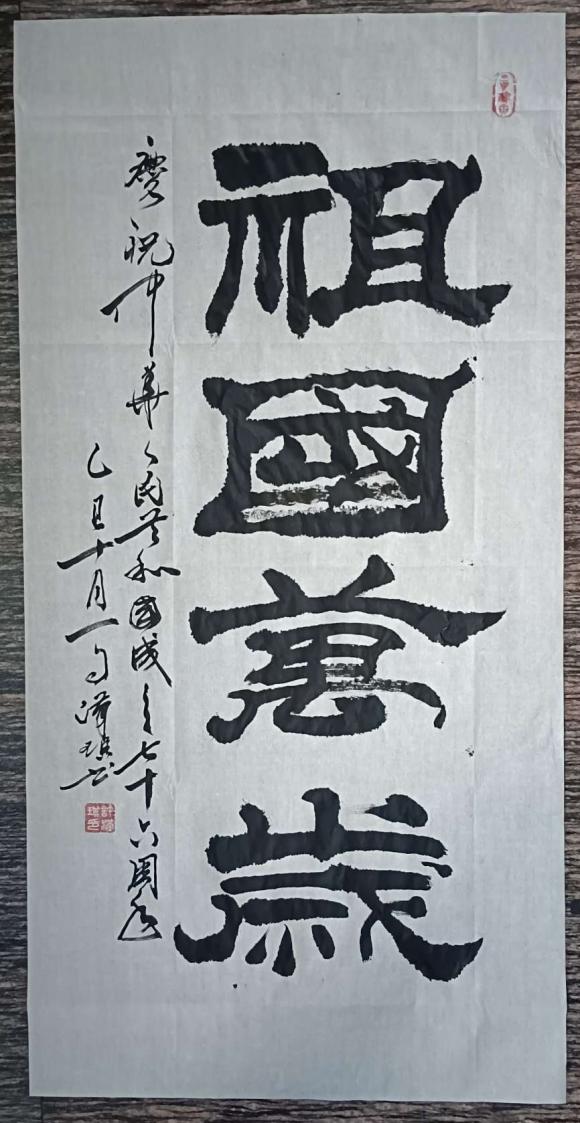 祖國萬歲
慶祝中華人民共和國成立七十六周年
乙巳十月一日澤琪书